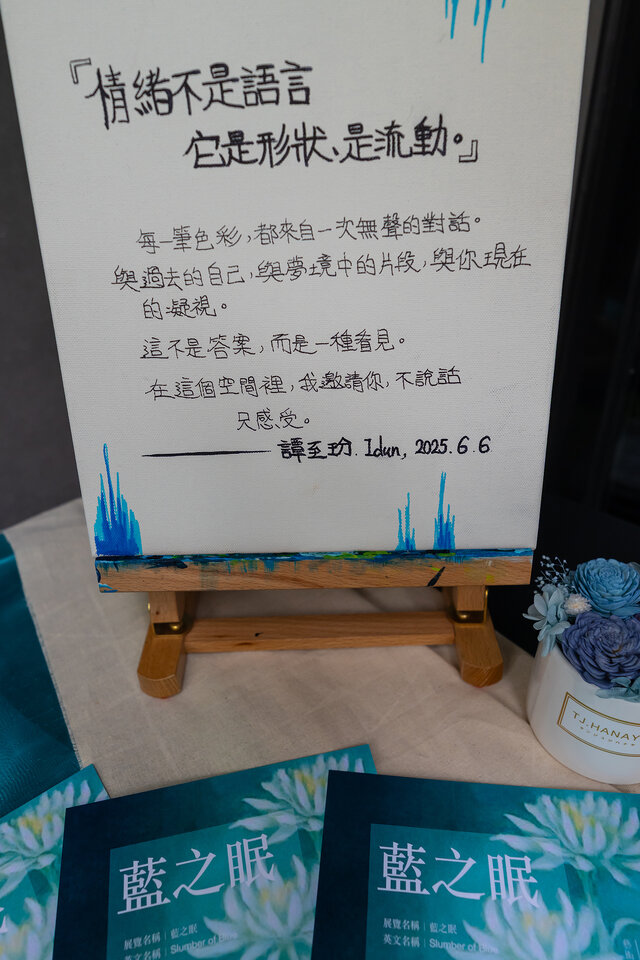 『情緒不是語言
它是形狀、是流動。』
每一筆色彩,都來自一次無聲的對話。
與過去的自己,與夢境中的片段,與你現在
的凝視。
這不是答案,而是一種看見。
在這個空間裡,我邀請你,不說話
只感受。
譚至玢. Idun, 2025.6.6
TJ.HANAY
藍之眠
展覽名稱|藍之眠
英文名稱|Slumber of Blue
藍之眠
展覽名稱|藍之眠
英文名稱|Slumber of Blue